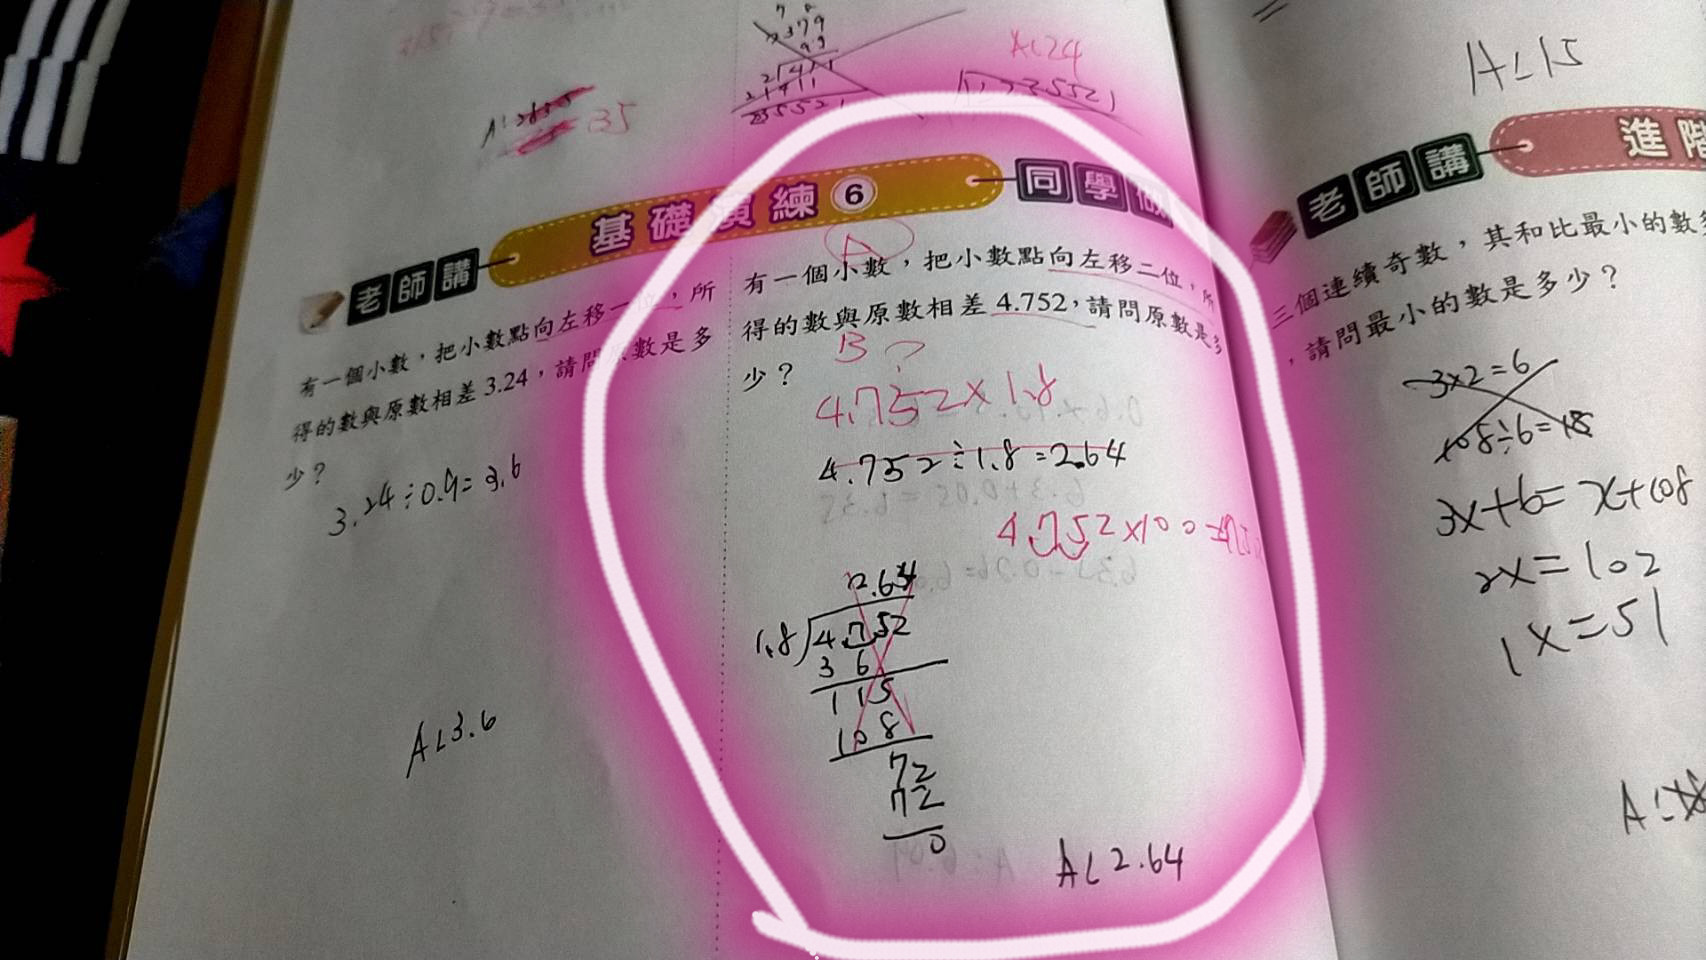 2379
99
21411
21411
235521
A:24
A:15
35
基礎演練 6
老師講
有一個小數,把小數點向左移一位,所
得的數與原數相差3.24,請問原數是多
少?
3.24÷0.9=3.6
A:3.6
同學做
A
有一個小數,把小數點向左移二位,所
得的數與原數相差4.752,請問原數是多
少?
B ?
4.752×1.8
4.752÷1.8=2.64
4.752×100=475
2.64
1.8 4.752
3 6
1 15
1 0 8
72
72
0
A:2.64
老師講
進階
三個連續奇數,其和比最小的數
,請問最小的數是多少?
3×2=6
108÷6=18
3x+6=x+108
2x=102
1x=51
A: